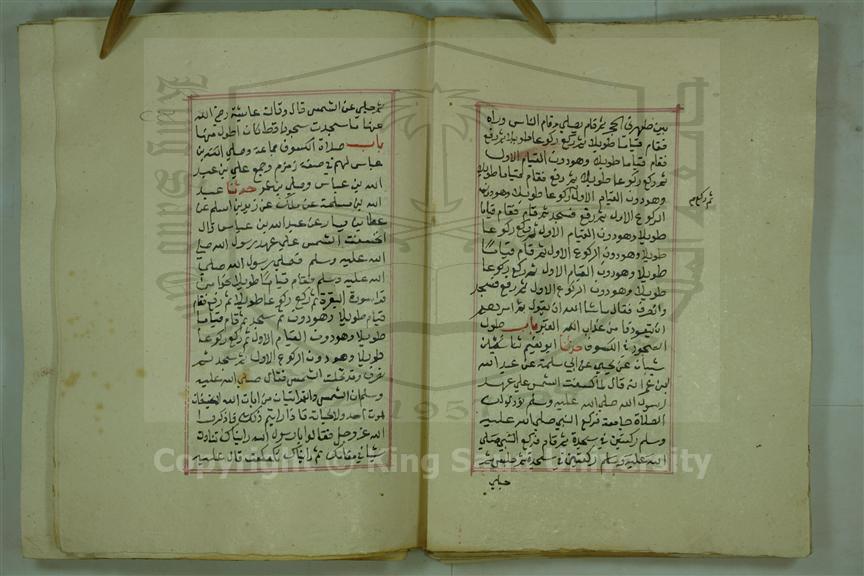 بين ظهري الحجر ثم قام يصلي وقام الناس وراه
فقام قياما طويلا ثم ركع ركوعا طويلا ثم رفع
فقام قياما طويلا وهو دون القيام الاول
ثم ركع ركوعا طويلا ثم رفع فقام قياما طويلا
وهو دون القيام الاول ركوعا طويلا وهو دون
الركوع الاول ثم رفع فسجد ثم قام فقام قياما
طويلا وهو دون القيام الاول ثم ركع ركوعا
طويلا وهو دون الركوع الاول ثم قام قياما
طويلا وهو دون القيام الاول ثم ركع ركوعا
طويلا وهو دون الركوع الاول ثم رفع فسجد
وانصرف فقال ما شا الله ان يقول ثم امرهم
ان يتعوذوا من عذاب القبر باب طول
السجود في الكسوف حدثنا ابو نعيم ثنا
شيبان عن يحيى عن ابي سلمة عن عبد الله
ابن عمرو انه قال لما كسفت الشمس علي عهد
رسول الله صلى الله عليه وسلم نودي ان
الصلاة جامعة فركع النبي صلى الله عليه
وسلم ركعتين في سجدة ثم قام فركع النبي صلى
الله عليه وسلم ركعتين في سجدة ثم جلس ثم
جلي
ثم ركع
ثم جلي عن الشمس قال وقالت عايشة رضي الله
عنها ما سجدت سجودا قط كان اطول منها
باب صلاة الكسوف جماعة وصلي ابن
عباس لهم في صفة زمزم وجمع علي بن عبد
الله بن عباس وصلي بن عمر حدثنا عبد
الله بن مسلمة عن مالك عن زيد بن اسلم عن
عطا بن يسار عن عبد الله بن عباس قال
انخسفت الشمس علي عهد رسول الله صلي
الله عليه وسلم فصلي رسول الله صلي
الله عليه وسلم فقام قياما طويلا نحوا من
قراة سورة البقرة ثم ركع ركوعا طويلا ثم رفع فقام
قياما طويلا وهو دون ثم سجد ثم قام قياما
طويلا وهو دون القيام الاول ثم ركع ركوعا
طويلا وهو دون الركوع الاول ثم سجد ثم
انصرف وقد تجلت الشمس فقال صلى الله عليه
وسلم ان الشمس والقمر ايتان من ايات الله لا يخسفان
لموت احد ولا لحياته فاذا رايتم ذلك فاذكروا
الله عز وجل فقالوا يا رسول الله رايناك تناولت
شيا في مقامك ثم رايناك كعكعت قال عليه
Copyright © King Saud University
King Saud University
1957